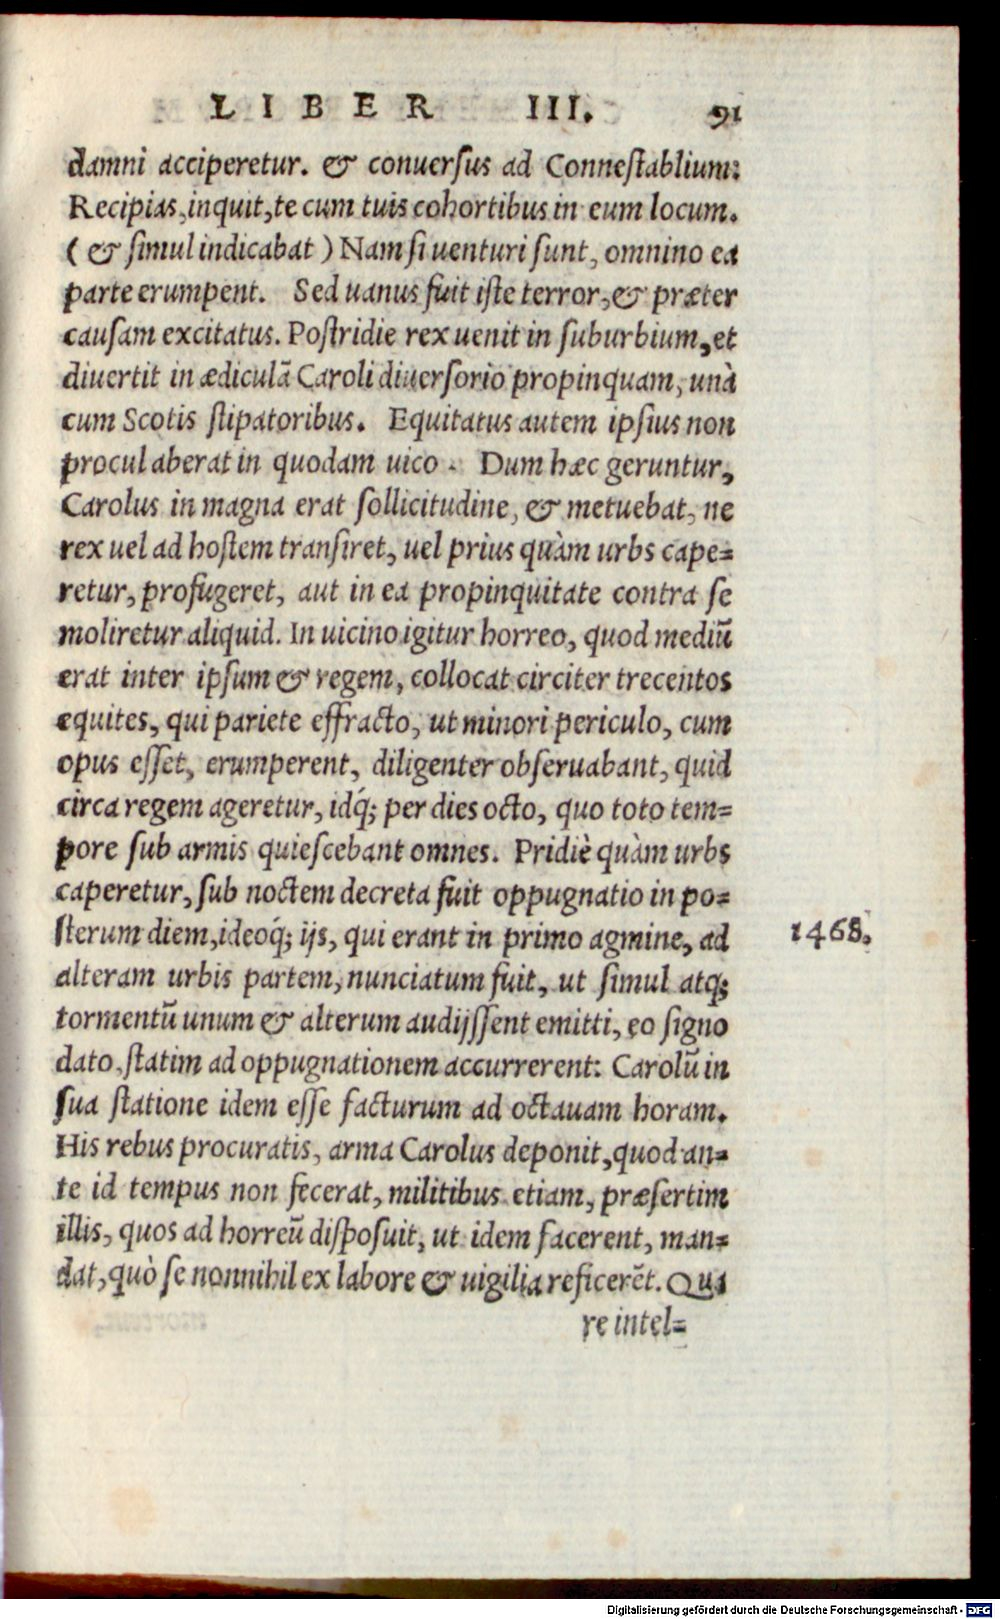 LIBER III. 91
damni acciperetur. & conuersus ad Connestablium:
Recipias, inquit, te cum tuis cohortibus in eum locum.
( & simul indicabat ) Nam si uenturi sunt, omnino ea
parte erumpent. Sed uanus fuit iste terror, & præter
causam excitatus. Postridie rex uenit in suburbium, et
diuertit in ædiculā Caroli diuersorio propinquam, unà
cum Scotis stipatoribus. Equitatus autem ipsius non
procul aberat in quodam uico. Dum hæc geruntur,
Carolus in magna erat sollicitudine, & metuebat, ne
rex uel ad hostem transiret, uel prius quàm urbs cape=
retur, profugeret, aut in ea propinquitate contra se
moliretur aliquid. In uicino igitur horreo, quod mediū
erat inter ipsum & regem, collocat circiter trecentos
equites, qui pariete effracto, ut minori periculo, cum
opus esset, erumperent, diligenter obseruabant, quid
circa regem ageretur, idq́; per dies octo, quo toto tem=
pore sub armis quiescebant omnes. Pridiè quàm urbs
caperetur, sub noctem decreta fuit oppugnatio in po=
sterum diem, ideoq́; ijs, qui erant in primo agmine, ad
1468.
alteram urbis partem, nunciatum fuit, ut simul atq;
tormentū unum & alterum audijssent emitti, eo signo
dato, statim ad oppugnationem accurrerent: Carolū in
sua statione idem esse facturum ad octauam horam.
His rebus procuratis, arma Carolus deponit, quod an=
te id tempus non fecerat, militibus etiam, præsertim
illis, quos ad horreū disposuit, ut idem facerent, man=
dat, quò se nonnihil ex labore & uigilia reficerēt. Qua
re intel=
Digitalisierung gefördert durch die Deutsche Forschungsgemeinschaft - DFG